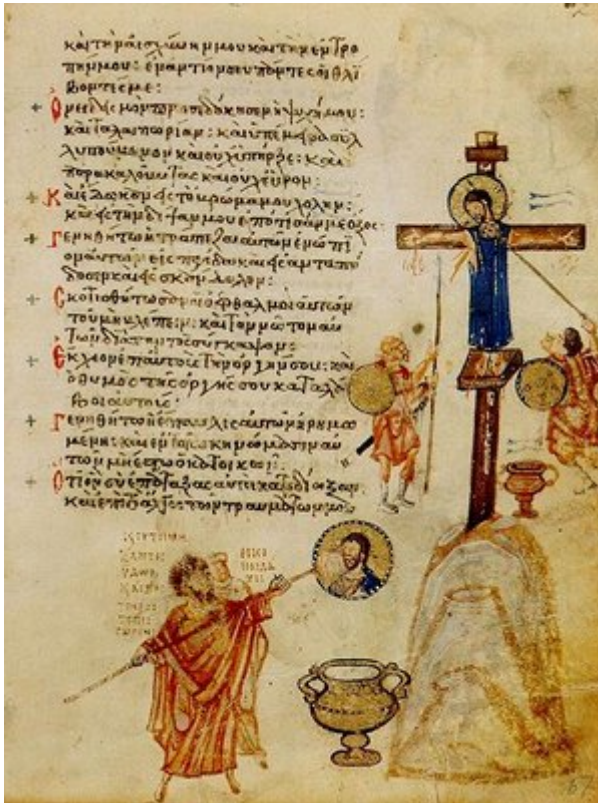 καὶ τὴν αἰσχύνην μου καὶ τὴν ἐντρο
πήν μου: ἐναντίον σου πάντες οἱ θλί
βοντές με:
Ὀνειδισμὸν προσεδόκησεν ἡ ψυχή μου:
καὶ ταλαιπωρίαν: καὶ ὑπέμεινα συλ
λυπούμενον καὶ οὐχ ὑπῆρξε: καὶ
παρακαλοῦντας καὶ οὐχ εὗρον:
Καὶ ἔδωκαν εἰς τὸ βρῶμά μου χολήν:
καὶ εἰς τὴν δίψαν μου ἐπότισάν με ὄξος
Γενηθήτω ἡ τράπεζα αὐτῶν ἐνώπι
ον αὐτῶν εἰς παγίδα καὶ εἰς ἀνταπό
δοσιν καὶ εἰς σκάνδαλον:
Σκοτισθήτωσαν οἱ ὀφθαλμοὶ αὐτῶν
τοῦ μὴ βλέπειν: καὶ τὸν νῶτον αὐ
τῶν διὰ παντὸς σύγκαμψον:
Ἔκχεον ἐπ' αὐτοὺς τὴν ὀργήν σου: καὶ
ὁ θυμὸς τῆς ὀργῆς σου καταλά
βοι αὐτούς
Γενηθήτω ἡ ἔπαυλις αὐτῶν ἠρημω
μένη: καὶ ἐν τοῖς σκηνώμασιν αὐ
τῶν μὴ ἔστω ὁ κατοικῶν:
Ὅτι ὃν σὺ ἐπάταξας αὐτοὶ κατεδίωξαν
καὶ ἐπὶ τὸ ἄλγος τῶν τραυμάτων μου
67